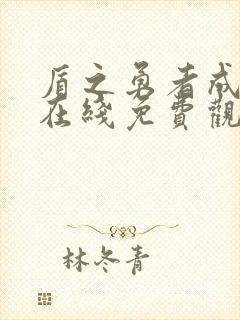 盾之勇者成
在綫免費觀
林冬青